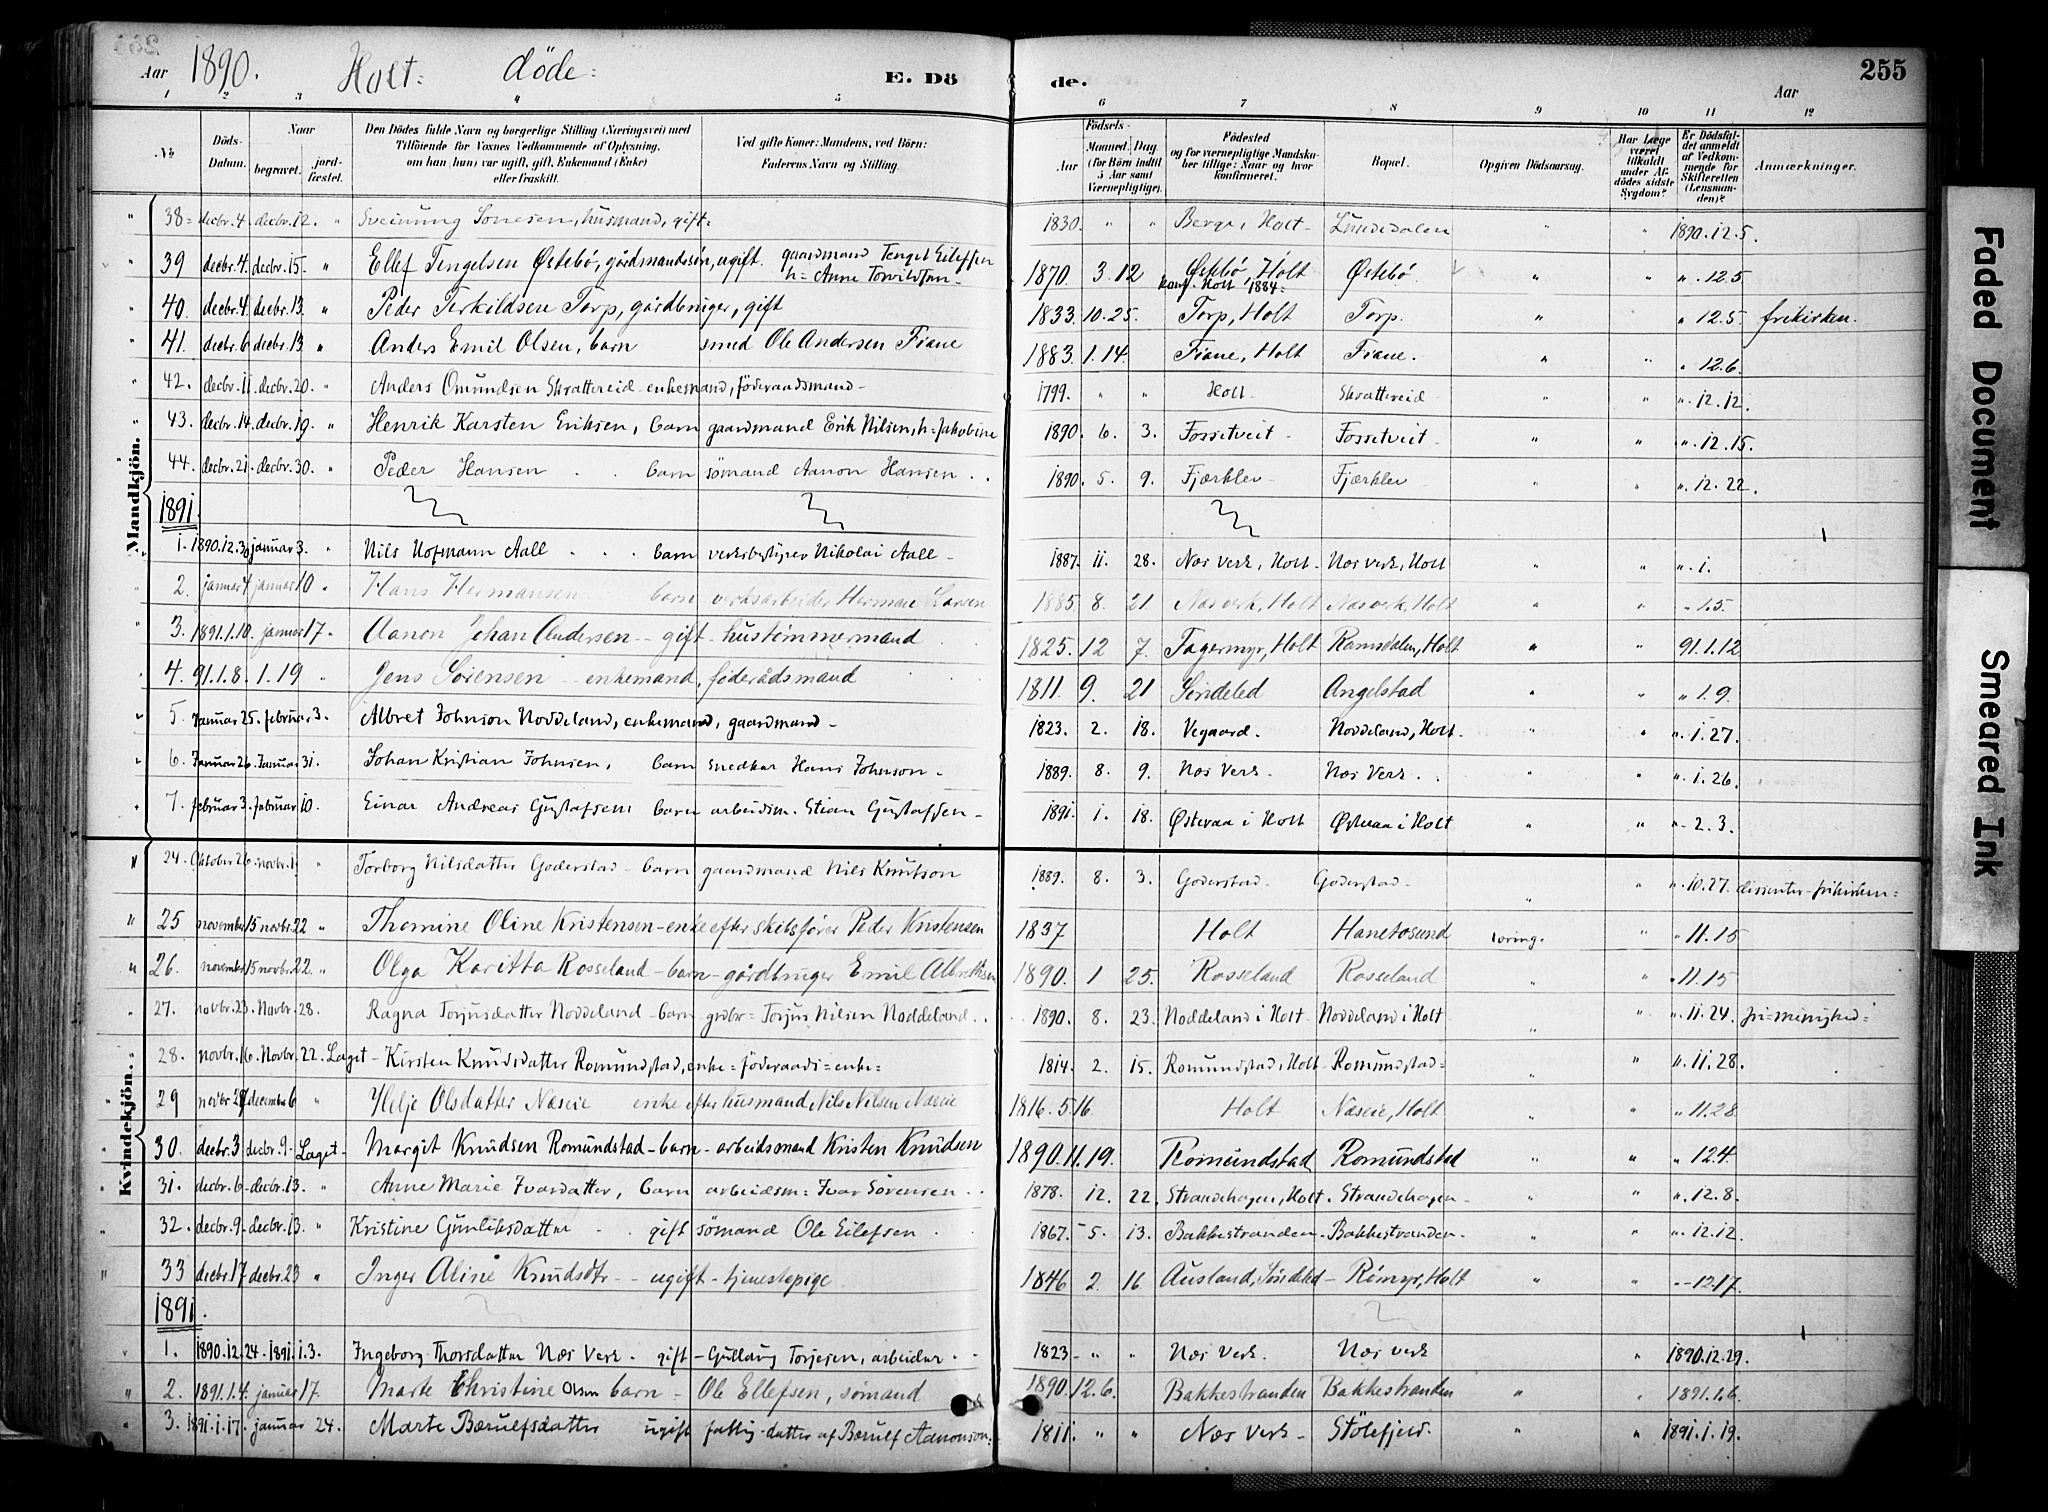 Aar 1890. Holt: døde: E. Dö de. Aar 255
1 2 3 4 5 6 7 8 9 10 11 12
No Döds-Datum. Naar begravet. jord-fæstet. Den Dödes fulde Navn og borgerlige Stilling (Næringsvei) med Tilföiende for Voxnes Vedkommende af Oplysning, om han (hun) var ugift, gift, Enkemand (Enke) eller fraskilt. Ved gifte Koner: Mandens, ved Börn: Faderens Navn og Stilling. Födsels- Aar Maaned. (for Börn indtil 5 Aar samt Værnepligtige). Dag Födested og for værnepligtige Mandskaber tillige: Naar og hvor konfirmeret. Bopæl. Opgiven Dödsaarsag. Har Læge været tilkaldt under Afdödes sidste Sygdom? Er Dödsfaldet anmeldt af Vedkommende for Skifteretten (Lensmanden)? Anmærkninger.
Mandkjön.
" 38= decbr. 4. decbr. 12. " Sveinung husmand, gift= 1830. " " Berge, Holt- Lundedalen " " 1890.12.5.
" 39 decbr. 4. decbr. 15. " Ellef Tengelsen Østebö, gårdmandssön, ugift. gaardmand Tengel Eilefsen h= Anne 1870. 3. 12 Østebö, Holt konf. Holt 1884= Østebö " " " 12.5
" 40. decbr. 4 decbr. 13. " Peder Terkildsen Torp, gårdbruger, gift 1833. 10. 25. Torp, Holt Torp. " " " 12.5. frikirken.
" 41. decbr. 6 decbr. 13 " Anders Emil Olsen, barn smed Ole Andersen Fiane 1883. 1. 14. Fiane, Holt Fiane. " " " 12.6.
" 42. decbr. 11. decbr. 20. " Anders Omundsen Skrattereid- enkemand, föderaadsmand- 1799. " " Holt- Skrattereid " " ". 12.12.
" 43. decbr. 14. decbr. 19. " Henrik Karsten Eriksen, barn gaardmand Erik Nilsen, h= Jakobine 1890. 6. 3. Fossetveit- Fossetveit- " " ". 12.15.
" 44. decbr. 21. decbr. 30. " Peder Hansen . . barn sömand Aanon Hansen . . 1890. 5. 9. Fjærklev- Fjærklev " " ". 12.22.
1891.
" 1. 1890.12.30 januar 3. " Nils Hofmann Aall . . . barn verksbestyrer Nikolai Aall- 1887. 11. 28. Næs Verk, Holt- Næs Verk, Holt " " ". 1.
" 2. januar 4 januar 10 " Hans Hermansen barn verksarbeider Herman Larsen 1885. 8. 21. Næsverk, Holt Næsverk, Holt " " " 1.5.
" 3. 1891.1.10. januar 17. " Aanon Johan Andersen -- gift - hustömmermand 1825. 12 7. Fagermyr, Holt Ramsdalen, Holt " " 91.1.12
" 4. 91.1.8. 1.19 " Jens Sörensen -- enkemand, föderådsmand 1811. 9. 21 Söndeled Angelstad " " " 1.9.
" 5. Januar 25. februar 3. " Albret Johnson Noddeland, enkemand, gaardmand- 1823. 2. 18. Vegaard. Noddeland, Holt. " " ". 1.27.
" 6. Januar 26. Januar 31. Johan Kristian Johnsen, barn snedker Hans Johnson- 1889. 8. 9. Næs Verk- Næs Verk . . " " ". 1.26.
" 7. februar 3. februar 10. Einar Andreas Gustafsen barn arbeidsm. Stian Gustafsen- 1891. 1. 18. Østeraa i Holt Østeraa i Holt " " ". 2.3.
Kvindekjön.
" 24. Oktober 26. novbr. 1. " Torborg Nilsdatter Goderstad- barn gaardmand Nils Knutson 1889. 8. 3. Goderstad- Goderstad- " " ". 10.27. dissenter-frikirken=
" 25 november 15 novbr. 22 " Thomine Oline Kristensen - enke efter skibsförer Peder Kristensen 1837 Holt Hanetosund tæring. " " 11.15
" 26. november 15 novbr. 22. " Olga Karitta Rosseland - barn - gårdbruger Emil Albrethsen 1890. 1 25. Rosseland Rosseland " " " 11.15
" 27. novbr. 23. Novbr. 28. Ragna Torjusdatter Noddeland - barn - grdbr= Torjus Nilsen Noddeland . . 1890. 8. 23. Noddeland i Holt- Noddeland i Holt " " ". 11.24. fri=menighed=
" 28. novbr. 16. Novbr. 22. Laget- Kirsten Knudsdatter Romundstad, enke=föderaads=enke= 1814. 2. 15. Romundstad, Holt- Romundstad= " " ". 11.28.
" 29 novbr. 28 december 6 " Helje Olsdatter Næseie enke efter husmand Nils Nilsen Næseie 1816. 5. 16. Holt Næseie, Holt " " " 11.28
" 30. decbr. 3 decbr. 9- Laget- Margit Knudsen Romundstad - barn - arbeidsmand Kristen Knudsen 1890. 11. 19. Romundstad Romundstad " " " 12.4.
" 31. decbr. 6- decbr. 13. " Anne Marie Ivarsdatter, barn arbeidsm= Ivar Sörensen . . 1878. 12. 22. Strandehagen, Holt. Strandehagen- " " ". 12.8.
" 32. decbr. 9- decbr. 13. " Kristine Gunliksdatter . . gift sömand Ole Eilefsen . . 1867. 5. 13. Bakkestranden- Bakkestranden- " " ". 12.12.
" 33 decbr. 17 decbr. 23 " Inger Aline Knudsdtr -- ugift - tjenestepige 1846 2 16 Ausland, Söndeled - Römyr, Holt " " "-12.17.
1891.
" 1. 1890.12.24- 1891.1.3. Ingeborg Thorsdatter Næs Verk- gift - Gullaug Torjesen, arbeider . . 1823- " " Næs Verk. Næs Verk " 1890.12.29.
" 2. 1891.1.4. januar 17. Marte Christine Olsen barn - Ole Ellefsen, sömand 1890. 12. 6. Bakkestranden Bakkestranden " " 1891.1.6.
" 3. 1891.1.17. januar 24. Marte Bærulfsdatter ugift fattig-datter af Bærulf Aanonson= 1811. " " Næs Verk- Stölefjeld. " " 1891.1.19.
Faded Document
Smeared Ink